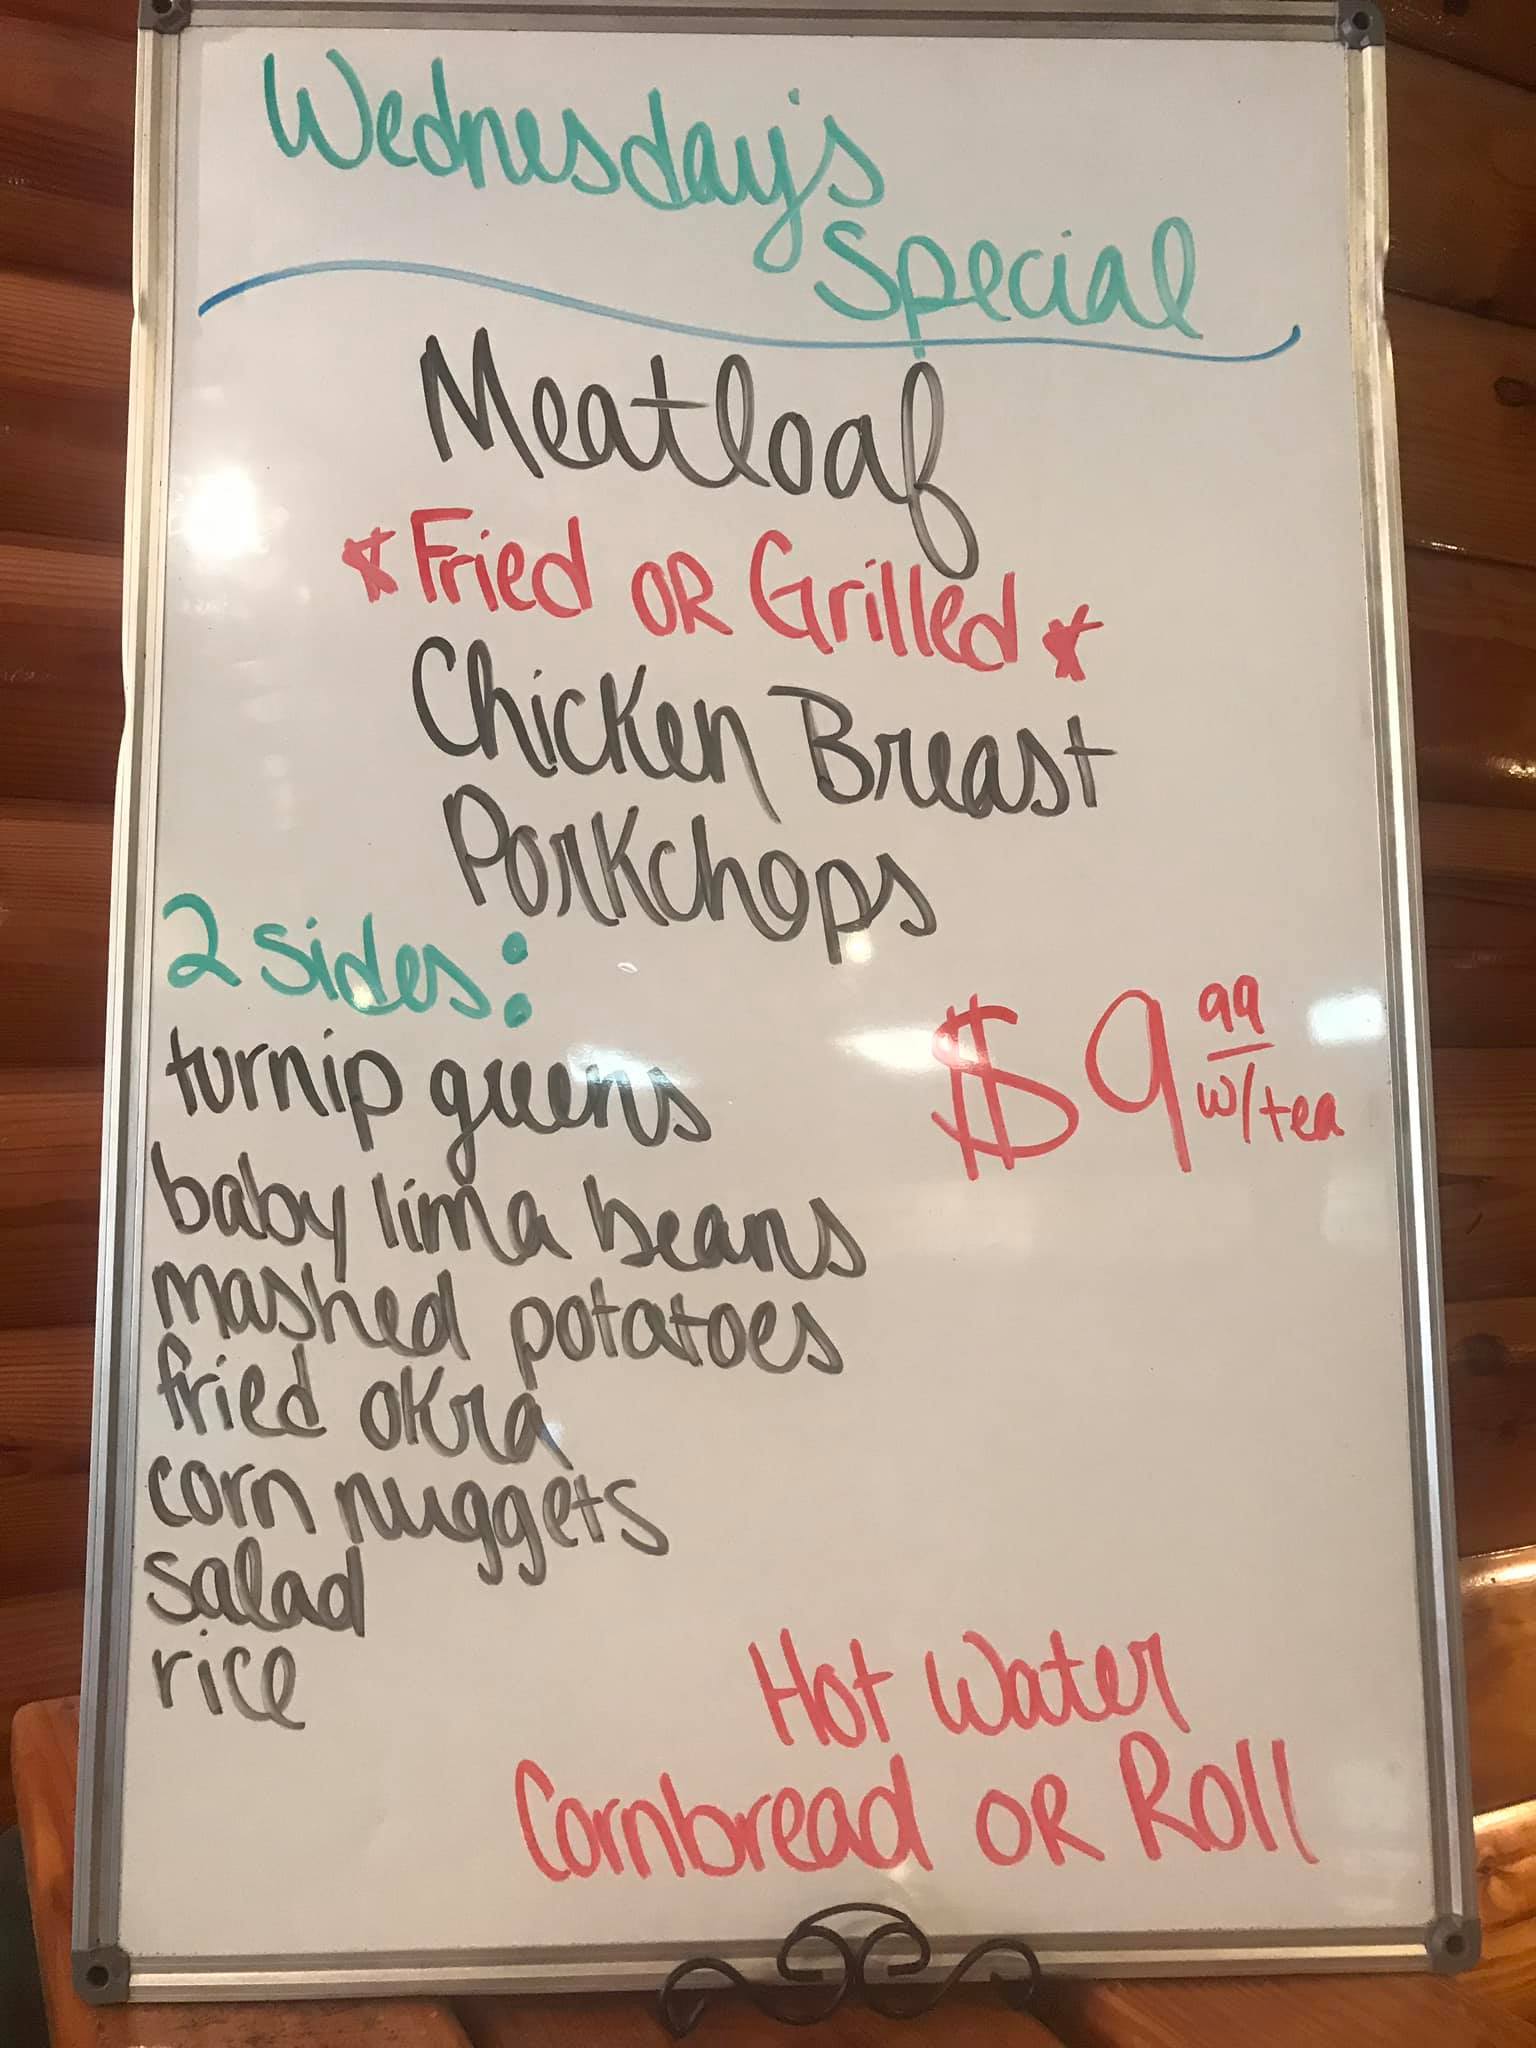 Wednesday's
Special
Meatloaf
*Fried OR Grilled*
Chicken Breast
Porkchops
2 sides:
turnip greens
baby lima beans
mashed potatoes
fried okra
corn nuggets
salad
rice
$9 99
w/tea
Hot Water
Cornbread OR Roll